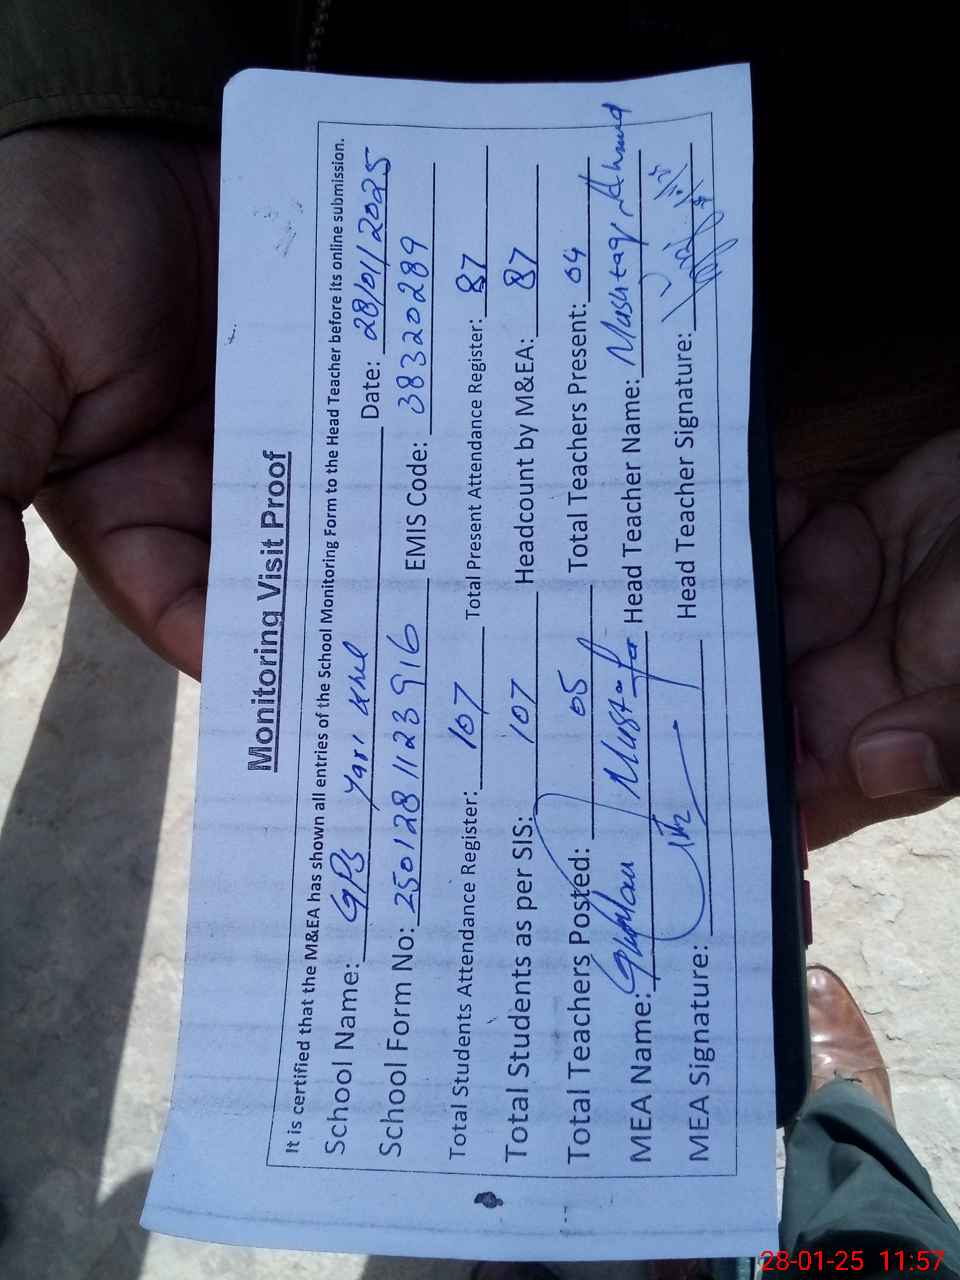 Monitoring Visit Proof
It is certified that the M&EA has shown all entries of the School Monitoring Form to the Head Teacher before its online submission.
School Name: GPS Yari Khel Date: 28/01/2025
School Form No: 2501281123916 EMIS Code: 38320289
Total Students Attendance Register: 107 Total Present Attendance Register: 87
Total Students as per SIS: 107 Headcount by M&EA: 87
Total Teachers Posted: 05 Total Teachers Present: 04
MEA Name: Ghulam Mustafa Head Teacher Name: Mushtaq Ahmad
MEA Signature: Head Teacher Signature:
28-01-25 11:57